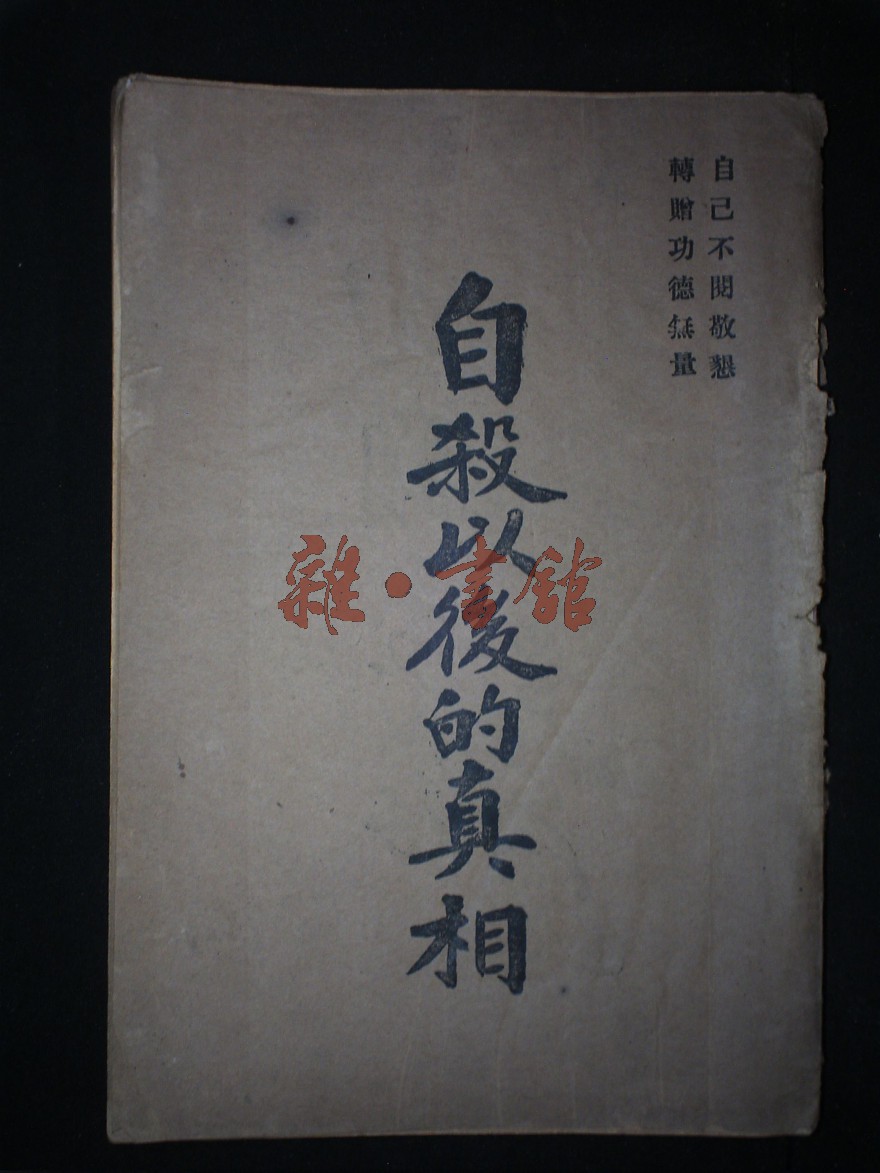 自己不閱敬懇
轉贈功德無量
自殺以後的真相
雜·書館